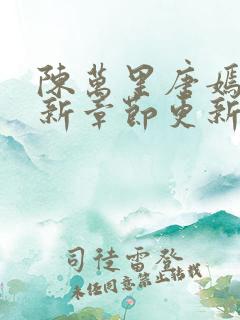 陳萬里唐嫣
新章節更新
司徒雷登
未经同意禁止转载